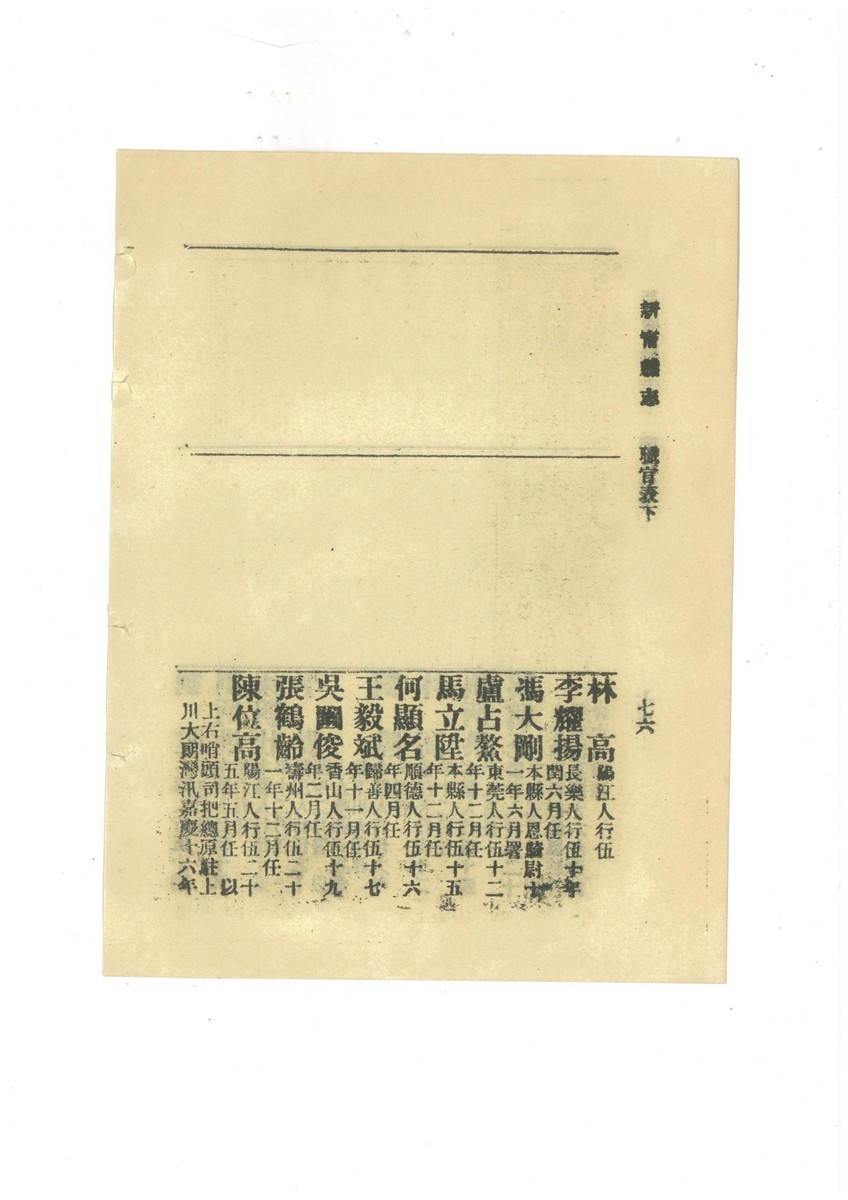 新甯縣志 職官表下 七六
林高 陽江人行伍
李耀揚 長樂人行伍十年
閏六月任
馮大剛 本縣人恩騎尉十
一年六月署
盧占鰲 東莞人行伍十二
年十二月任
馬立陞 本縣人行伍十五
年十二月任
何顯名 順德人行伍十六
年四月任
王毅斌 歸善人行伍十七
年十一月任
吳國俊 香山人行伍十九
年二月任
張鶴齡 壽州人行伍二十
一年十二月任
陳位高 陽江人行伍二十
五年五月任 以
上右哨頭司把總原駐上
川大朗灣汛嘉慶十六年